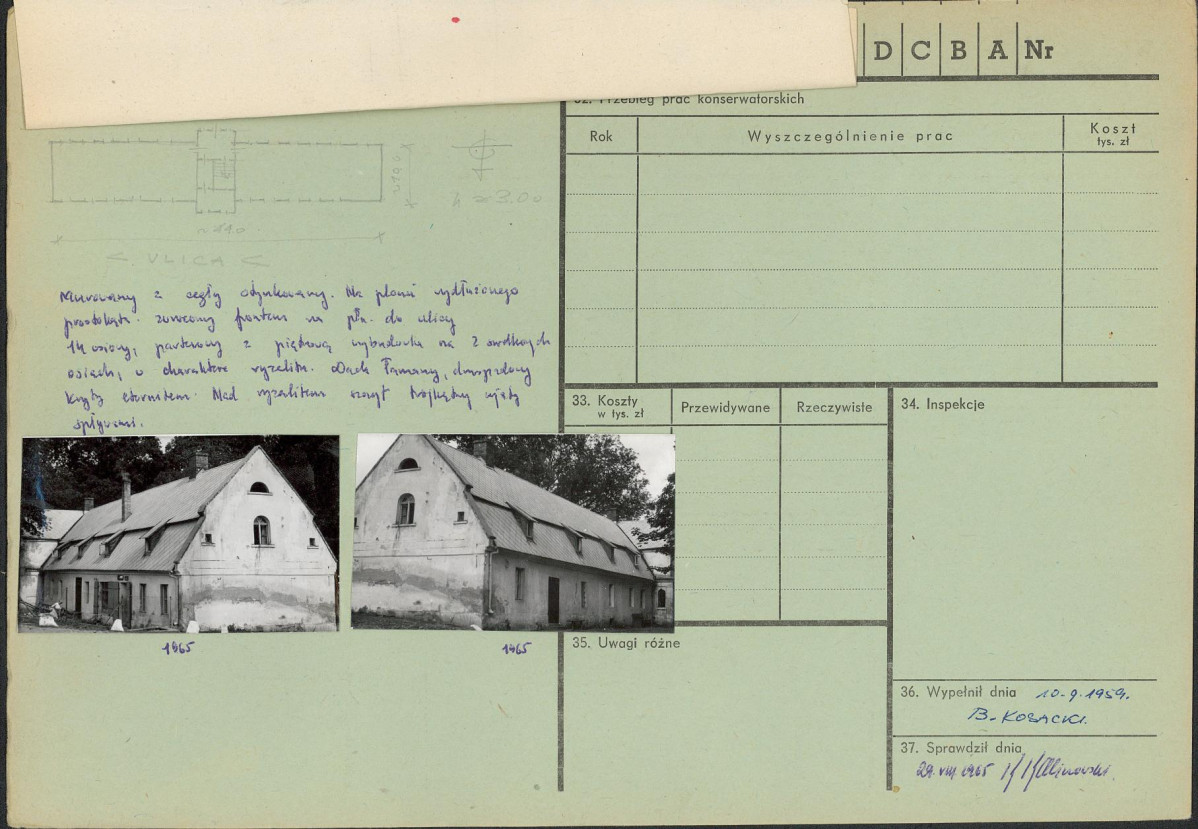 D C B A Nr
32. Przebieg prac konserwatorskich
Rok
Wyszczególnienie prac
Koszt
tys. zł
h ≈ 3.00
< ULICA <
Murowany z cegły otynkowany. Na planie wydłużonego
prostokąta. zwrócony frontem na płn. do ulicy
14 osiowy, parterowy z piętrową wybudówką na 2 środkowych
osiach, o charakterze ryzalitu. Dach łamany, dwuspadowy
kryty eternitem. Nad ryzalitem szczyt trójkątny ujęty
spływami.
1965
1965
33. Koszty
w tys. zł
Przewidywane
Rzeczywiste
34. Inspekcje
35. Uwagi różne
36. Wypełnił dnia 10.9.1959.
B. Kosacki
37. Sprawdził dnia
29. VIII 1965 Kalinowski